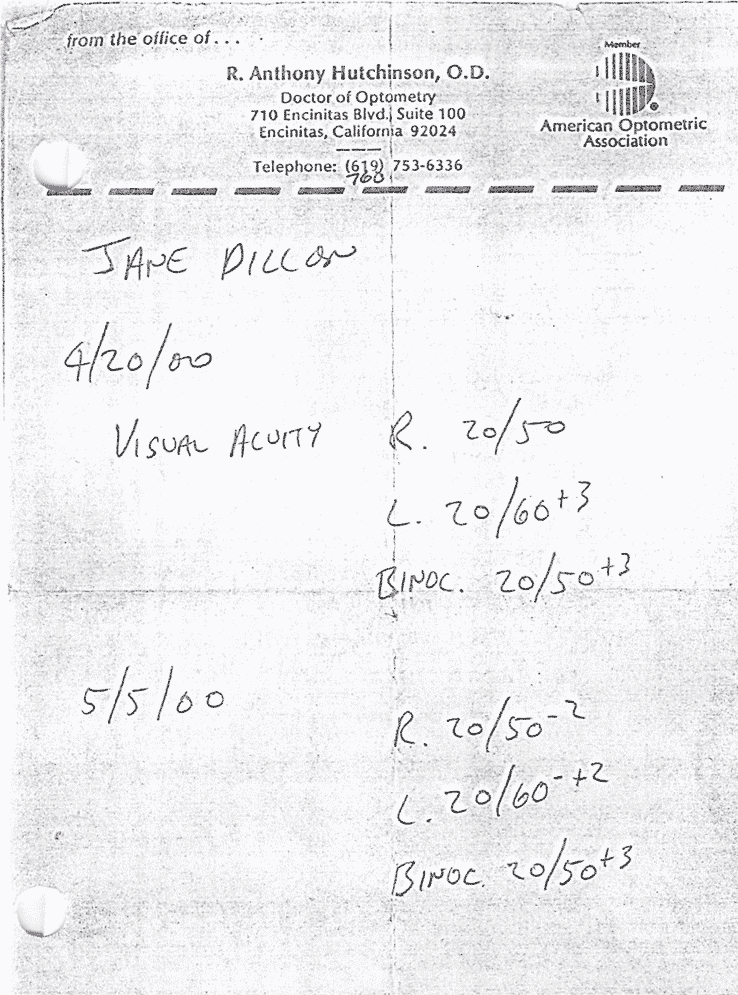 from the office of...
R. Anthony Hutchinson, O.D.
Doctor of Optometry
710 Encinitas Blvd., Suite 100
Encinitas, California 92024
Telephone: (619) 753-6336
760
Member
American Optometric
Association
JANE DILLON
4/20/00
VISUAL ACUITY R. 20/50
L. 20/60+3
BINOC. 20/50+3
5/5/00
R. 20/50-2
L. 20/60-+2
BINOC. 20/50+3